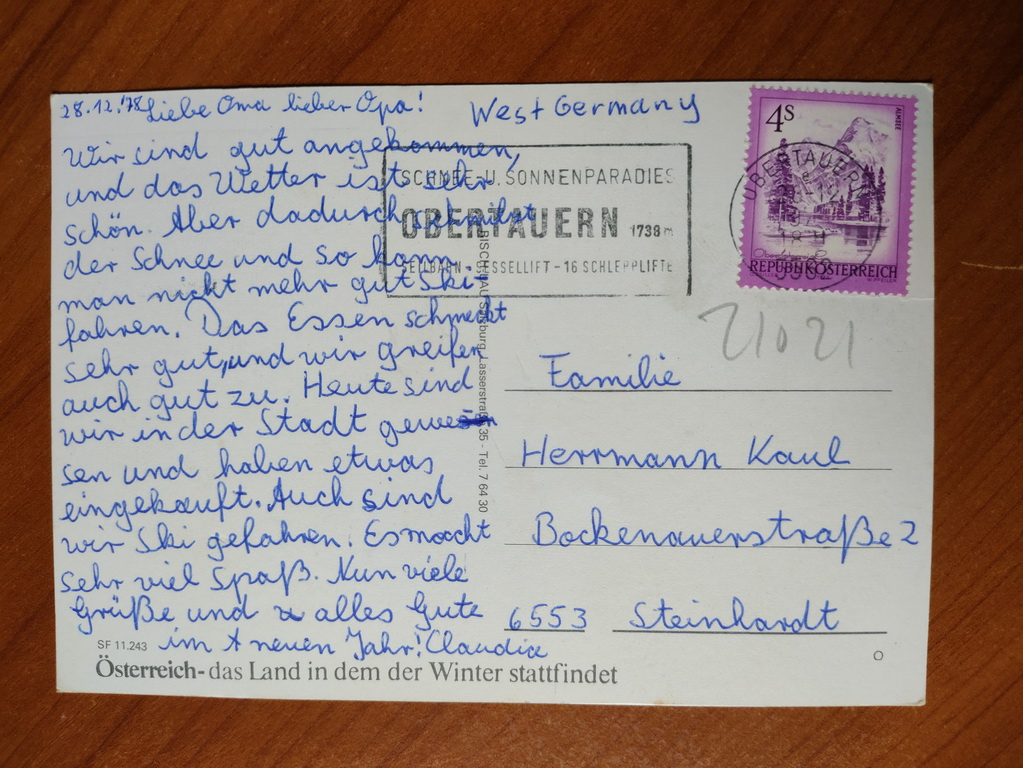 28.12.'78 Liebe Oma lieber Opa!
Wir sind gut angekommen,
und das Wetter ist sehr
schön. Aber dadurch schmilzt
der Schnee und so kann
man nicht mehr gut Ski
fahren. Das Essen schmeckt
sehr gut, und wir greifen
auch gut zu. Heute sind
wir in der Stadt gewe
sen und haben etwas
eingekauft. Auch sind
wir Ski gefahren. Es macht
sehr viel Spaß. Nun viele
Grüße und alles Gute
im neuen Jahr! Claudia
SF 11.243
Österreich- das Land in dem der Winter stattfindet
West Germany
SCHNEE-U. SONNENPARADIES
OBERTAUERN 1738 m
SEILBAHN-SESSELLIFT-16 SCHLEPPLIFTE
4S
ALMSEE
REPUBLIK ÖSTERREICH
OBERTAUERN
21021
Familie
Herrmann Kaul
Bockenauerstraße 2
6553 Steinhardt
Salzburg, Lasserstraße 35 - Tel. 7 64 30